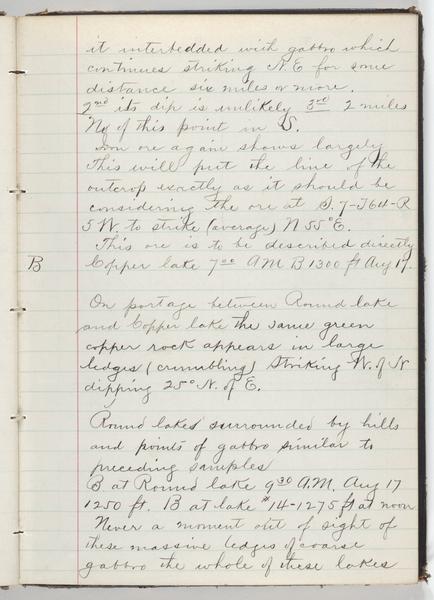 it interbedded with gabbro which
continues striking N.E for some
distance six miles or more.
2nd its dip is unlikely 3rd 2 miles
N of this point in S.
Iron ore again shows largely
This will put the line of the
outcrop exactly as it should be
considering the ore at S. 7-T64-R
5 W. to strike (average) N 55° E.
This ore is to be described directly
B Copper lake 7 00 A M B 1300 ft Aug 17.
On portage between Round lake
and Copper lake the same green
copper rock appears in large
ledges (crumbling) Striking W. of N
dipping 25° N. of E.
Round lakes surrounded by hills
and points of gabbro similar to
preceding samples
B at Round lake 9 30 A.M. Aug 17
1250 ft. B at lake #14-1275 ft at noon
Never a moment out of sight of
these massive ledges of coarse
gabbro the whole of these lakes